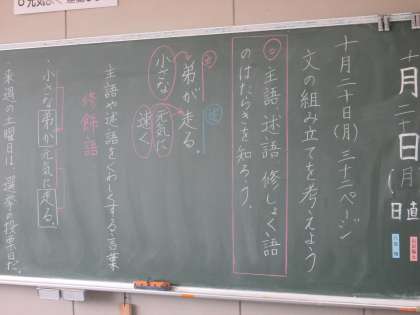 十月二十日(月)
日直
十月二十日(月) 三十二ページ
文の組み立てを考えよう
め 主語 述語 修しょく語
のはたらきを知ろう。
主 述
弟が走る。
小さな 元気に
速く
主語や述語をくわしくする言葉
修飾語
・小さな弟が元気に走る。
・来週の土曜日は、選挙の投票日だ。